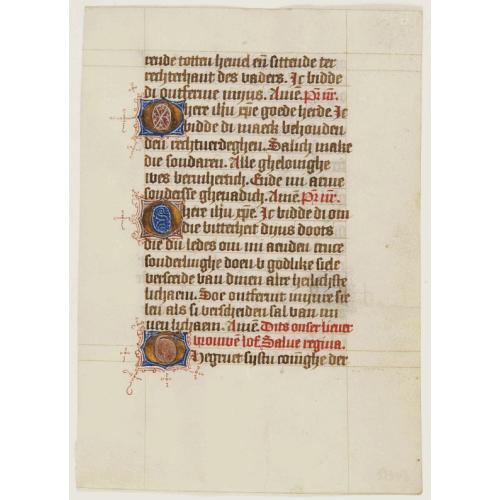 rende totten hemel en̄ sittende ter
rechterhant des vaders. Ic bidde
di ontferme mijns. Amē. Pr̄ nr̄.
O here ihū xp̄e goede herde. Ic
bidde di maeck behouden
den rechtuerdeghen. Salich make
die sondaren. Alle ghelouighe
wes bermhertich. Ende mi arme
sondersse ghenadich. Amē. Pr̄ nr̄.
O here ihū xp̄e. Ic bidde di om
die bitterheit dijns doots
die du ledes om mi aenden cruce
sonderlinghe doen v godlike siele
versceide van dinen alre heilichste
lichaem. Soe ontfermt mijnre sie
len als si verscheiden sal van mi
nen lichaem. Amē. Dits onser lieuer
vrouwē lof. Salue regina.
Ghegruet sijstu coni̅ghe der